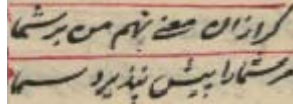 گر ازان می نهم من بر شما
مر شما را پیش نپذیرد سما